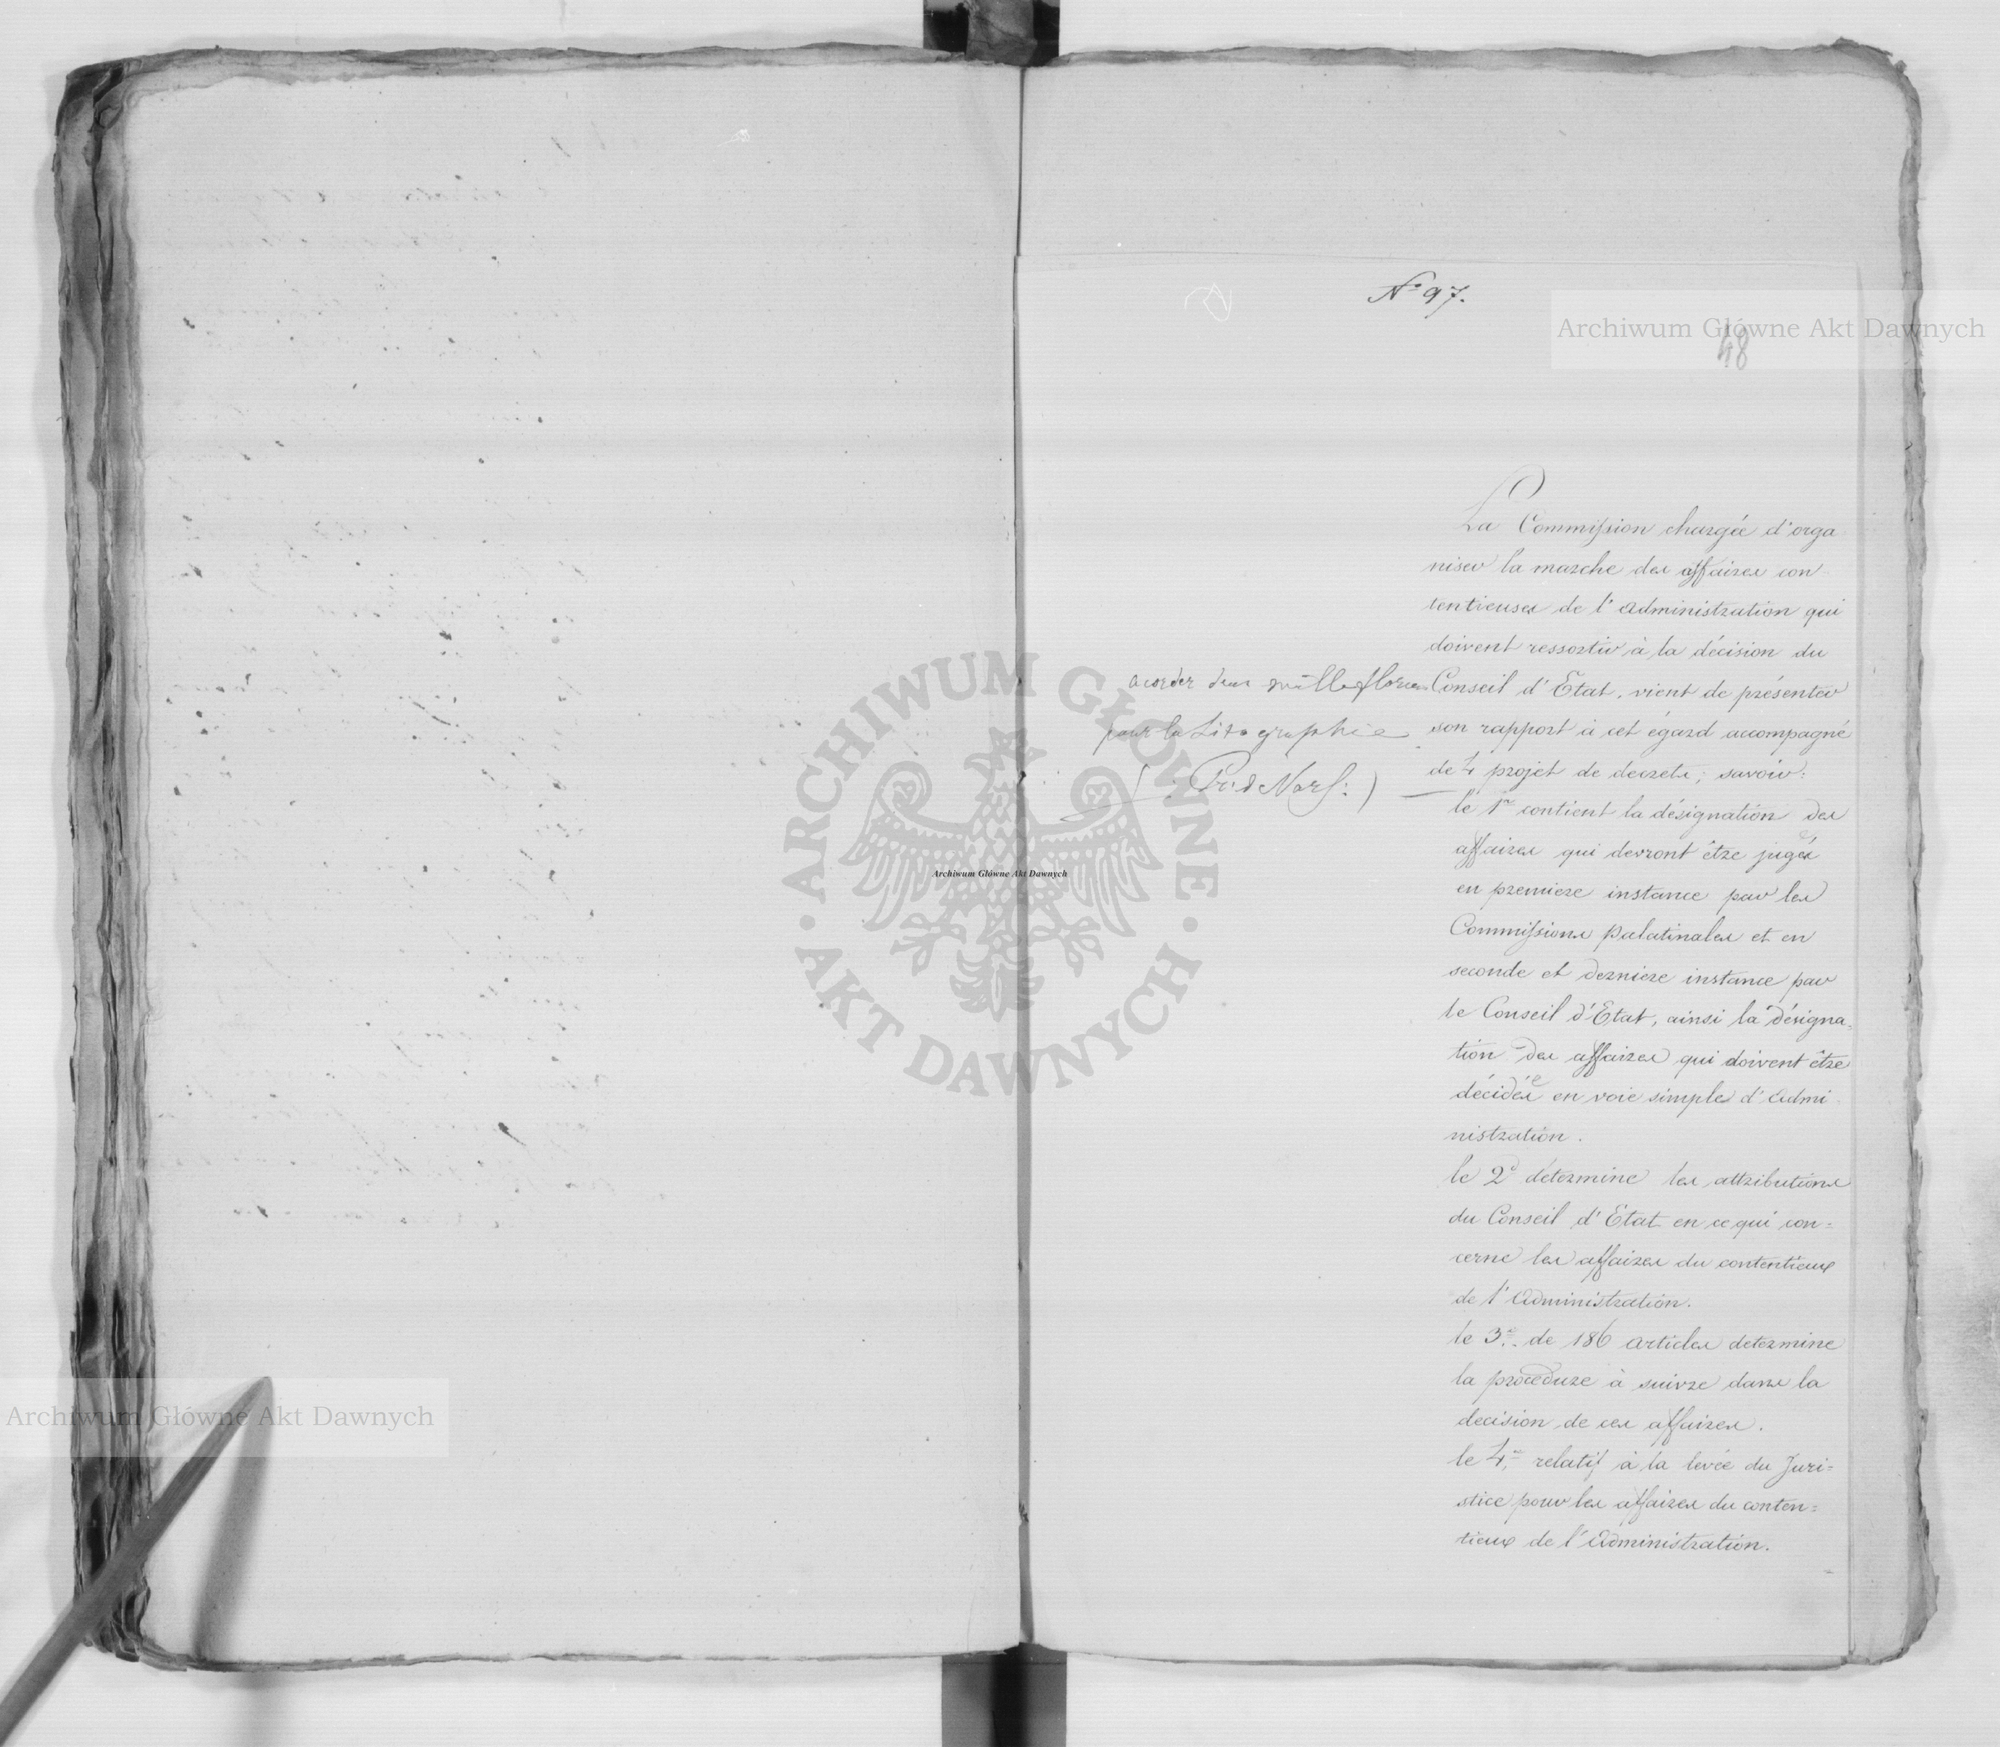 Nº 97.
48
La Commission chargée d'orga
niser la marche des affaires con-
tentieuses de l'Administration qui
doivent ressortir à la décision du
Conseil d'Etat, vient de présenter
son rapport à cet égard accompagné
de 4 projet de decrets; savoir:
le 1er contient la désignation des
affaires qui devront être jugées
en premiere instance par les
Commissions palatinales et en
seconde et derniere instance par
le Conseil d'Etat, ainsi la désigna-
tion des affaires qui doivent être
décidées en voie simple d'Admi-
nistration.
le 2d determine les attributions
du Conseil d'Etat en ce qui con=
cerne les affaires du contentieux
de l'Administration.
le 3e de 186 articles determine
la procedure à suivre dans la
decision de ces affaires.
le 4e relatif à la levée du Juri=
stice pour les affaires du conten=
tieux de l'Administration.
acorder deux mille florins
pour la Litographie
Archiwum Główne Akt Dawnych
Archiwum Główne Akt Dawnych
Archiwum Główne Akt Dawnych
ARCHIWUM GŁÓWNE
AKT DAWNYCH